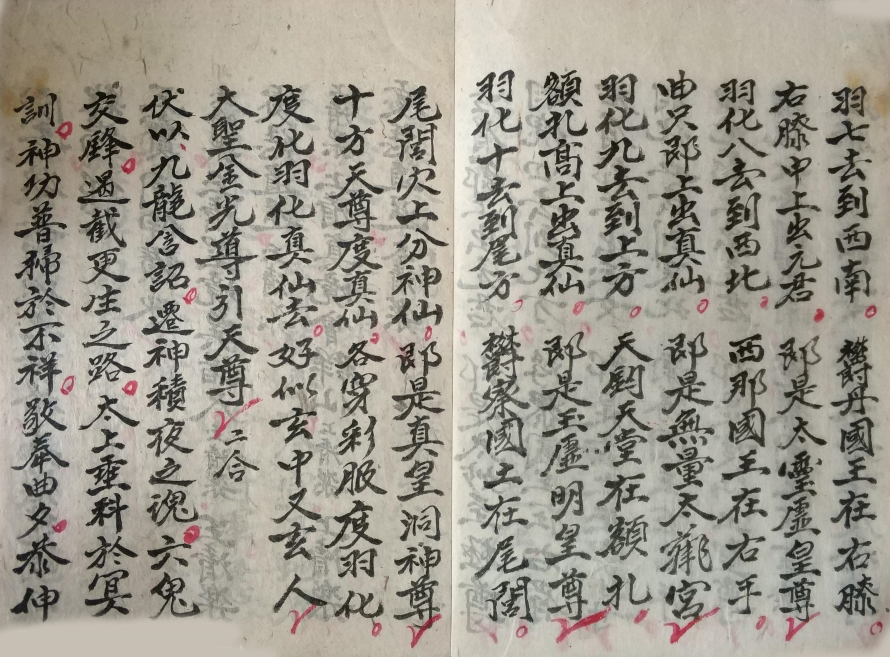 羽七去到西南 欝丹國王在右膝
右膝中上出元君 郎是太靈虛皇尊
羽化八去到西北 西那國王在右手
曲尺郎上出真仙 郎是無量太華宮
羽化九去到上方 天劉天堂在額扎
額扎高上出真仙 郎是玉虛明皇尊
羽化十去到尾方 欝察國土在尾閭
尾閭穴上分神仙 郎是真皇洞神尊
十方天尊度真仙 各穿彩服度羽化
度化羽化真仙去 好似玄中又玄人
大聖金光導引天尊 二合
伏以九龍含詔遷神積夜之魂六鬼
交鋒遏截更生之路太上垂科於冥
訓神功普掃於不祥敬奉曲夕恭伸